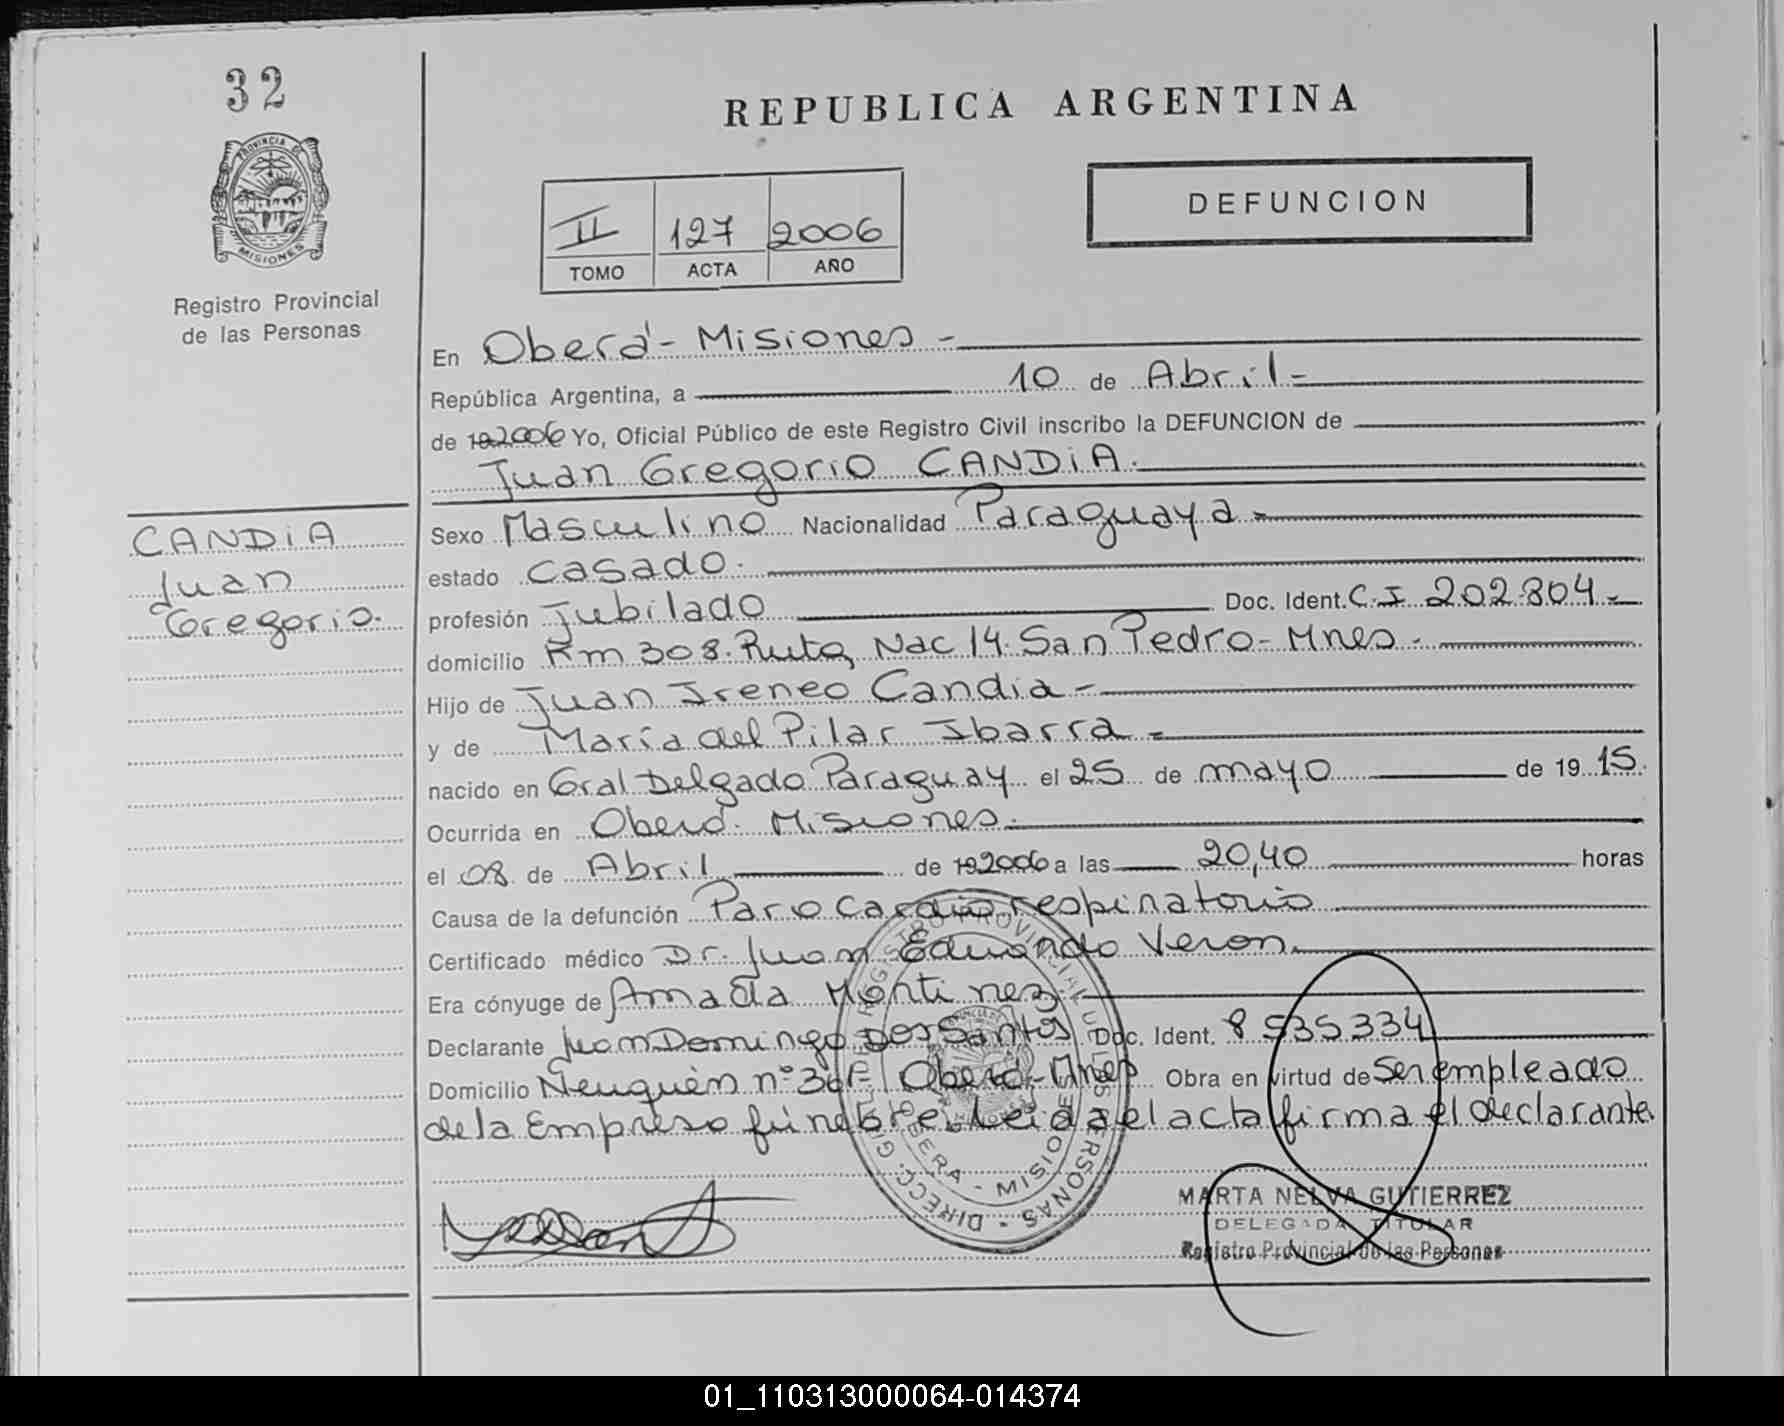 32
PROVINCIA DE
MISIONES
Registro Provincial
de las Personas
REPUBLICA ARGENTINA
DEFUNCION
II 127 2006
TOMO ACTA AÑO
En Oberá - Misiones -
República Argentina, a 10 de Abril -
de 19 2006 Yo, Oficial Público de este Registro Civil inscribo la DEFUNCION de
Juan Gregorio CANDiA.
CANDiA
Juan
Gregorio.
Sexo Masculino Nacionalidad Paraguaya -
estado casado.
profesión Jubilado Doc. Ident. C.I 202.804 -
domicilio Km 308. Ruta Nac 14. San Pedro - Mnes -
Hijo de Juan Ireneo Candia -
y de María del Pilar Ibarra -
nacido en Gral Delgado Paraguay el 25 de mayo de 19 15.
Ocurrida en Oberá. Misiones.
el 08 de Abril de 19 2006 a las 20,40 horas
Causa de la defunción Paro Cardio respiratorio
Certificado médico Dr. Juan Eduardo Veron.
Era cónyuge de Amada
Declarante Juan Domingo Dos Santos Doc. Ident. 8 535 334
Domicilio Neuquén nº Oberá - Mnes Obra en virtud de Ser empleado
de la Empresa fúnebre. Leida el acta firma el declarante
REGISTRO PROVINCIAL DE LAS PERSONAS - DIRECC. GRAL.
OBERA - MISIONES
MARTA NELVA GUTIERREZ
DELEGADA TITULAR
Registro Provincial de las Personas
01_110313000064-014374